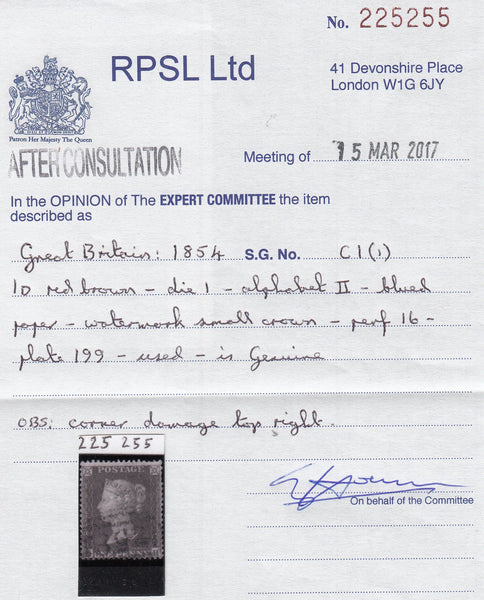 No. 225255
RPSL Ltd
41 Devonshire Place
London W1G 6JY
Patron Her Majesty The Queen
AFTER CONSULTATION
Meeting of 15 MAR 2017
In the OPINION of The EXPERT COMMITTEE the item
described as
Great Britain: 1854 S.G. No. C1(1)
1D red brown - die 1 - alphabet II - blued
paper - watermark small crown - perf 16 -
plate 199 - used - is Genuine
OBS: corner damage top right.
225 255
POSTAGE
ONE PENNY
On behalf of the Committee